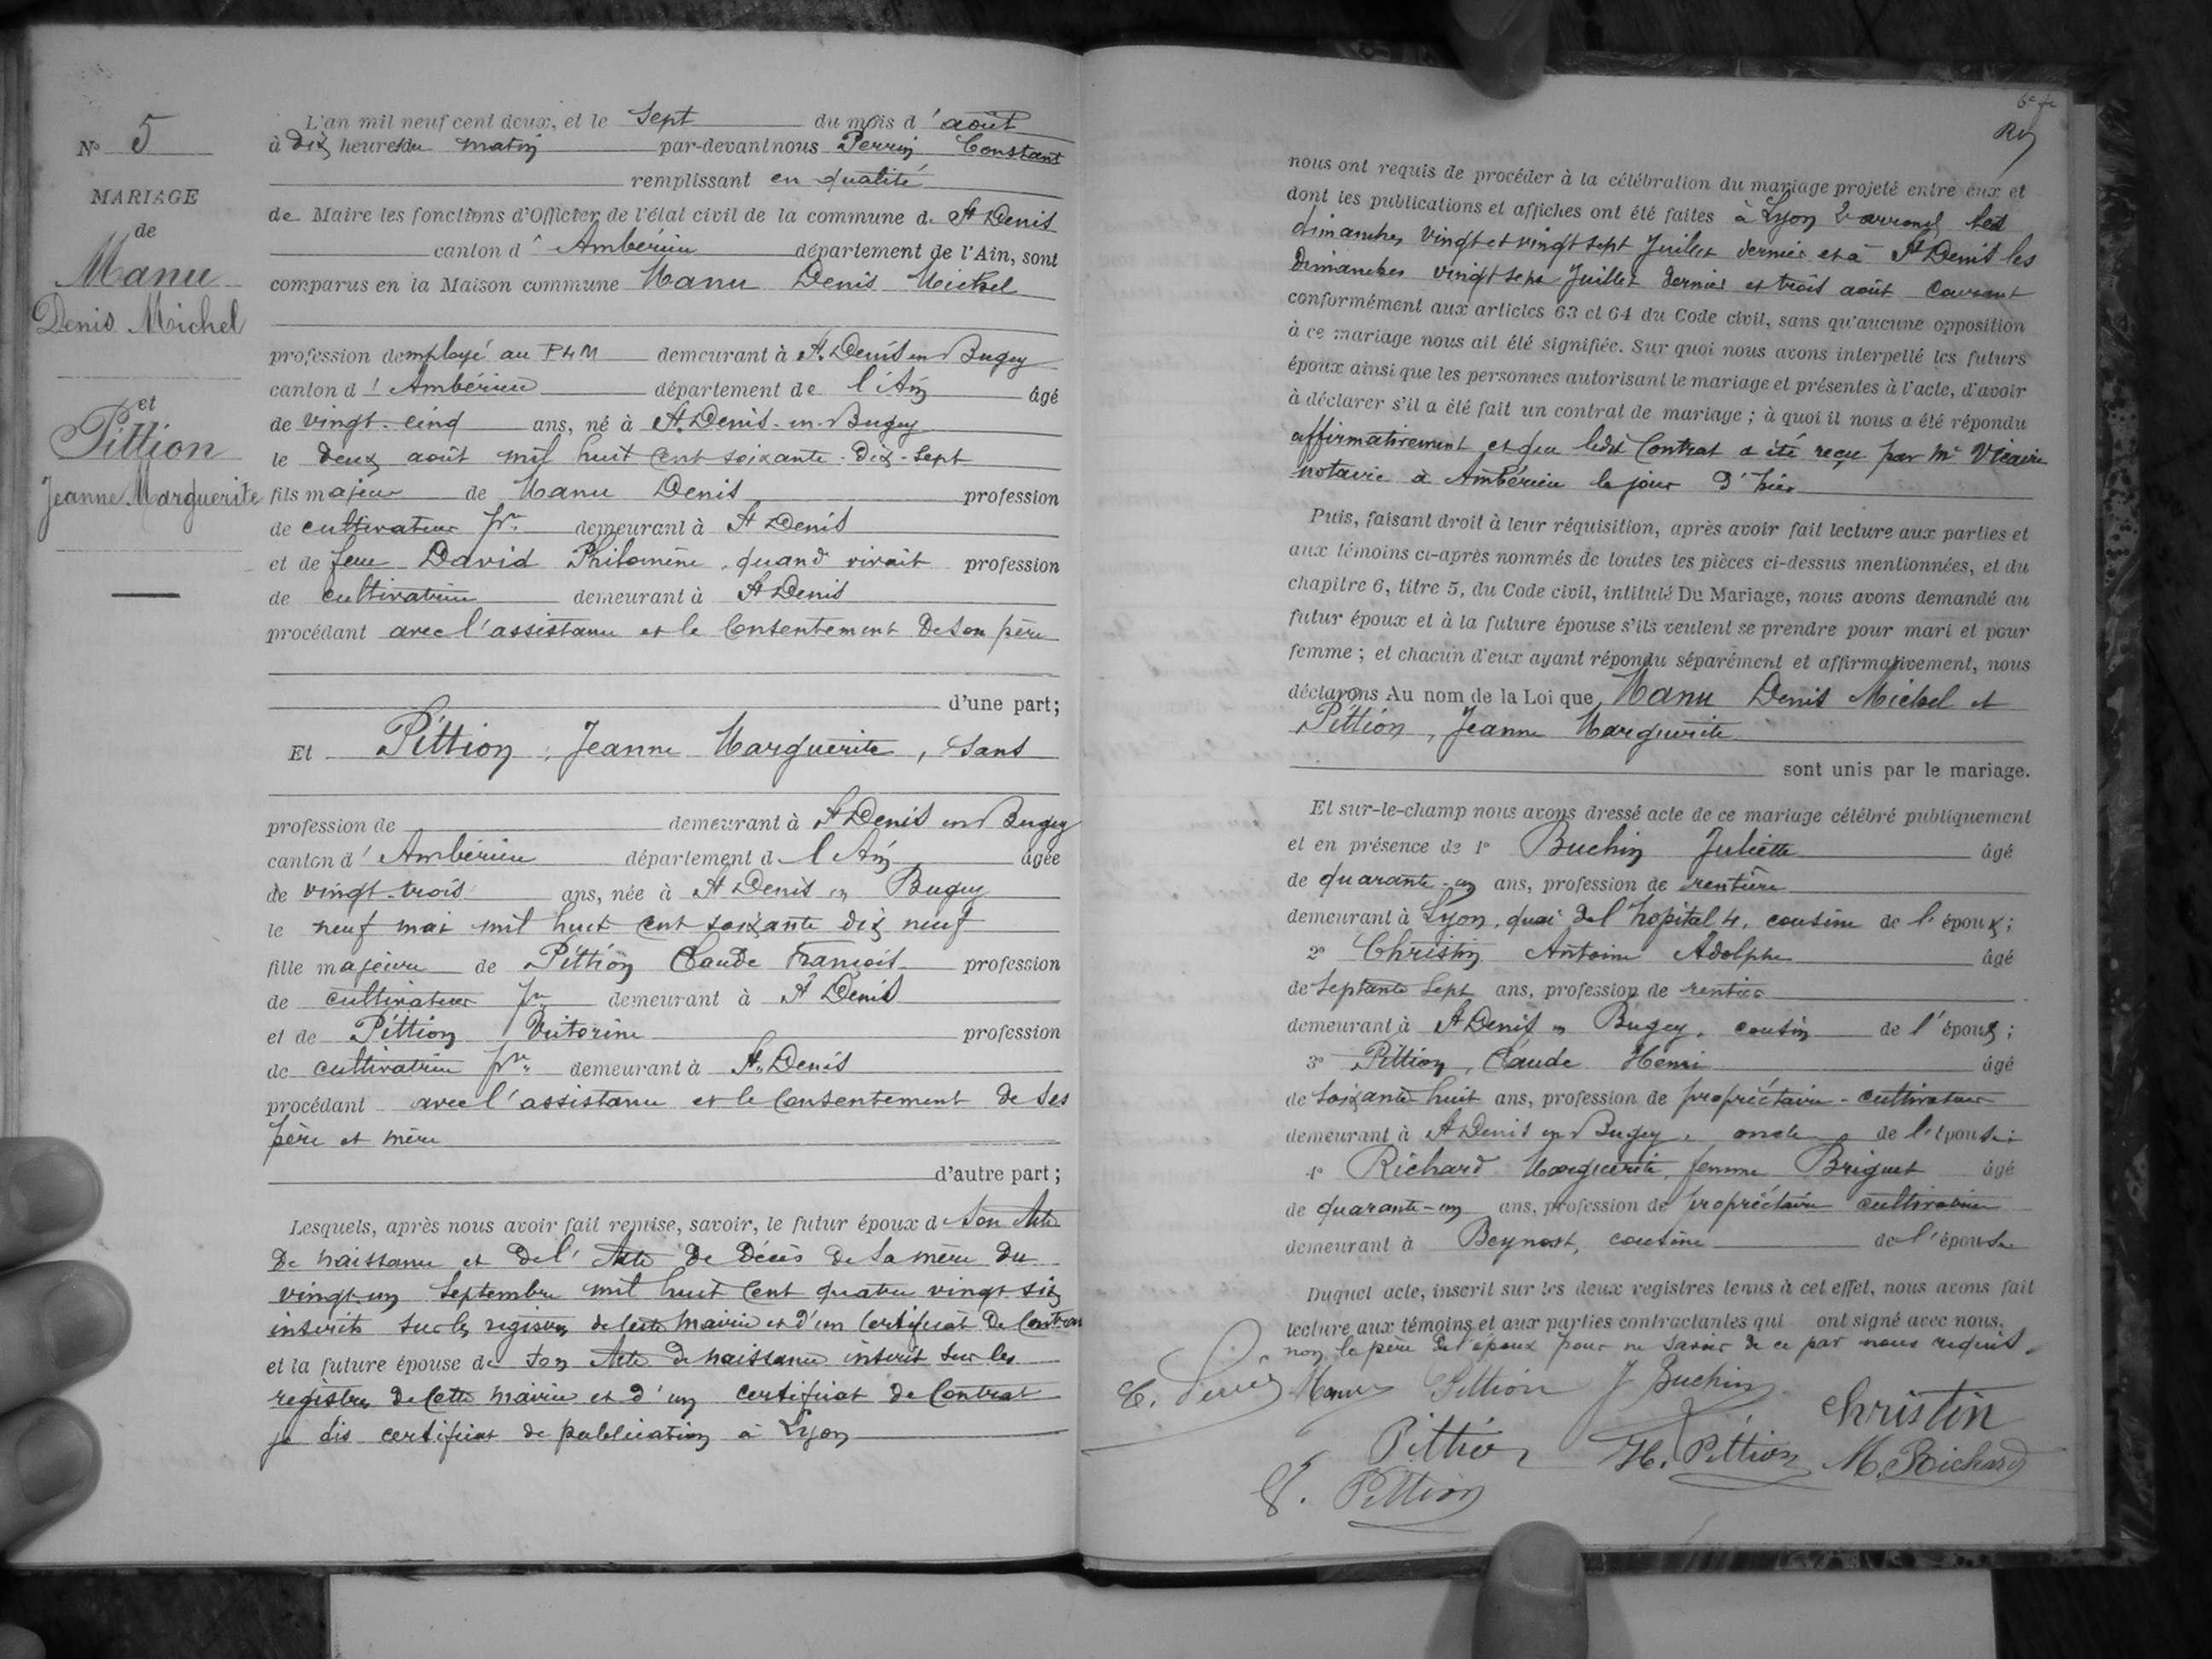 N° 5
MARIAGE
de
Manu
Denis Michel
et
Pittion
Jeanne Marguerite
L'an mil neuf cent deux, et le sept du mois d'août
à dix heures du matin par-devant nous Perrin Constant
remplissant en qualité
de Maire les fonctions d'Officier de l'état civil de la commune de St Denis
canton d'Ambérieu département de l'Ain, sont
comparus en la Maison commune Manu Denis Michel
profession d'employé au PLM demeurant à St Denis en Bugey
canton d'Ambérieu département de l'Ain âgé
de vingt-cinq ans, né à St Denis-en-Bugey
le deux août mil huit cent soixante-dix-sept
fils majeur de Manu Denis profession
de cultivateur pre demeurant à St Denis
et de feue David Philomène, quand vivait profession
de cultivatrice demeurant à St Denis
procédant avec l'assistance et le consentement de son père
d'une part;
Et Pittion, Jeanne Marguerite, sans
profession de demeurant à St Denis en Bugey
canton d'Ambérieu département d l'Ain âgée
de vingt-trois ans, née à St Denis en Bugey
le neuf mai mil huit cent soixante dix neuf
fille majeure de Pittion Claude François profession
de cultivateur pre demeurant à St Denis
et de Pittion Victorine profession
de cultivatrice pre demeurant à St Denis
procédant avec l'assistance et le consentement de ses
père et mère
d'autre part;
Lesquels, après nous avoir fait remise, savoir, le futur époux de son Acte
de naissance et de l'Acte de décès de sa mère du
vingt un septembre mil huit cent quatre vingt six
inscrits sur les registres de cette mairie et d'un certificat de Contrat
et la future épouse de son Acte de naissance inscrit sur les
registres de cette mairie et d'un certificat de Contrat
je dis certificat de publication à Lyon
Ry
nous ont requis de procéder à la célébration du mariage projeté entre eux et
dont les publications et affiches ont été faites à Lyon 2 arrond les
dimanches vingt et vingt sept Juillet dernier et à St Denis les
dimanches vingt sept Juillet dernier et trois août courant
conformément aux articles 63 et 64 du Code civil, sans qu'aucune opposition
à ce mariage nous ait été signifiée. Sur quoi nous avons interpellé les futurs
époux ainsi que les personnes autorisant le mariage et présentes à l'acte, d'avoir
à déclarer s'il a été fait un contrat de mariage; à quoi il nous a été répondu
affirmativement et que ledit Contrat a été reçu par Me Vicaire
notaire à Ambérieu le jour d'hier
Puis, faisant droit à leur réquisition, après avoir fait lecture aux parties et
aux témoins ci-après nommés de toutes les pièces ci-dessus mentionnées, et du
chapitre 6, titre 5, du Code civil, intitulé Du Mariage, nous avons demandé au
futur époux et à la future épouse s'ils veulent se prendre pour mari et pour
femme; et chacun d'eux ayant répondu séparément et affirmativement, nous
déclarons Au nom de la Loi que Manu Denis Michel et
Pittion, Jeanne Marguerite
sont unis par le mariage.
Et sur-le-champ nous avons dressé acte de ce mariage célébré publiquement
et en présence de 1° Buchin Juliette âgé
de quarante-un ans, profession de rentière
demeurant à Lyon, quai de l'hopital 4, cousine de l'époux;
2° Christin Antoine Adolphe âgé
de septante sept ans, profession de rentier
demeurant à St Denis en Bugey, cousin de l'époux;
3° Pittion, Claude Henri âgé
de soixante huit ans, profession de propriétaire-cultivateur
demeurant à St Denis en Bugey, oncle de l'épouse;
4° Richard Marguerite, femme Briguet âgé
de quarante-un ans, profession de propriétaire cultivatrice
demeurant à Beynost, cousine de l'épouse
Duquel acte, inscrit sur les deux registres tenus à cet effet, nous avons fait
lecture aux témoins et aux parties contractantes qui ont signé avec nous,
non le père de l'époux pour ne savoir de ce par nous requis.
C. Perrin Manu Pittion J Buchin
Christin
Pittion H. Pittion M. Richard
Pittion